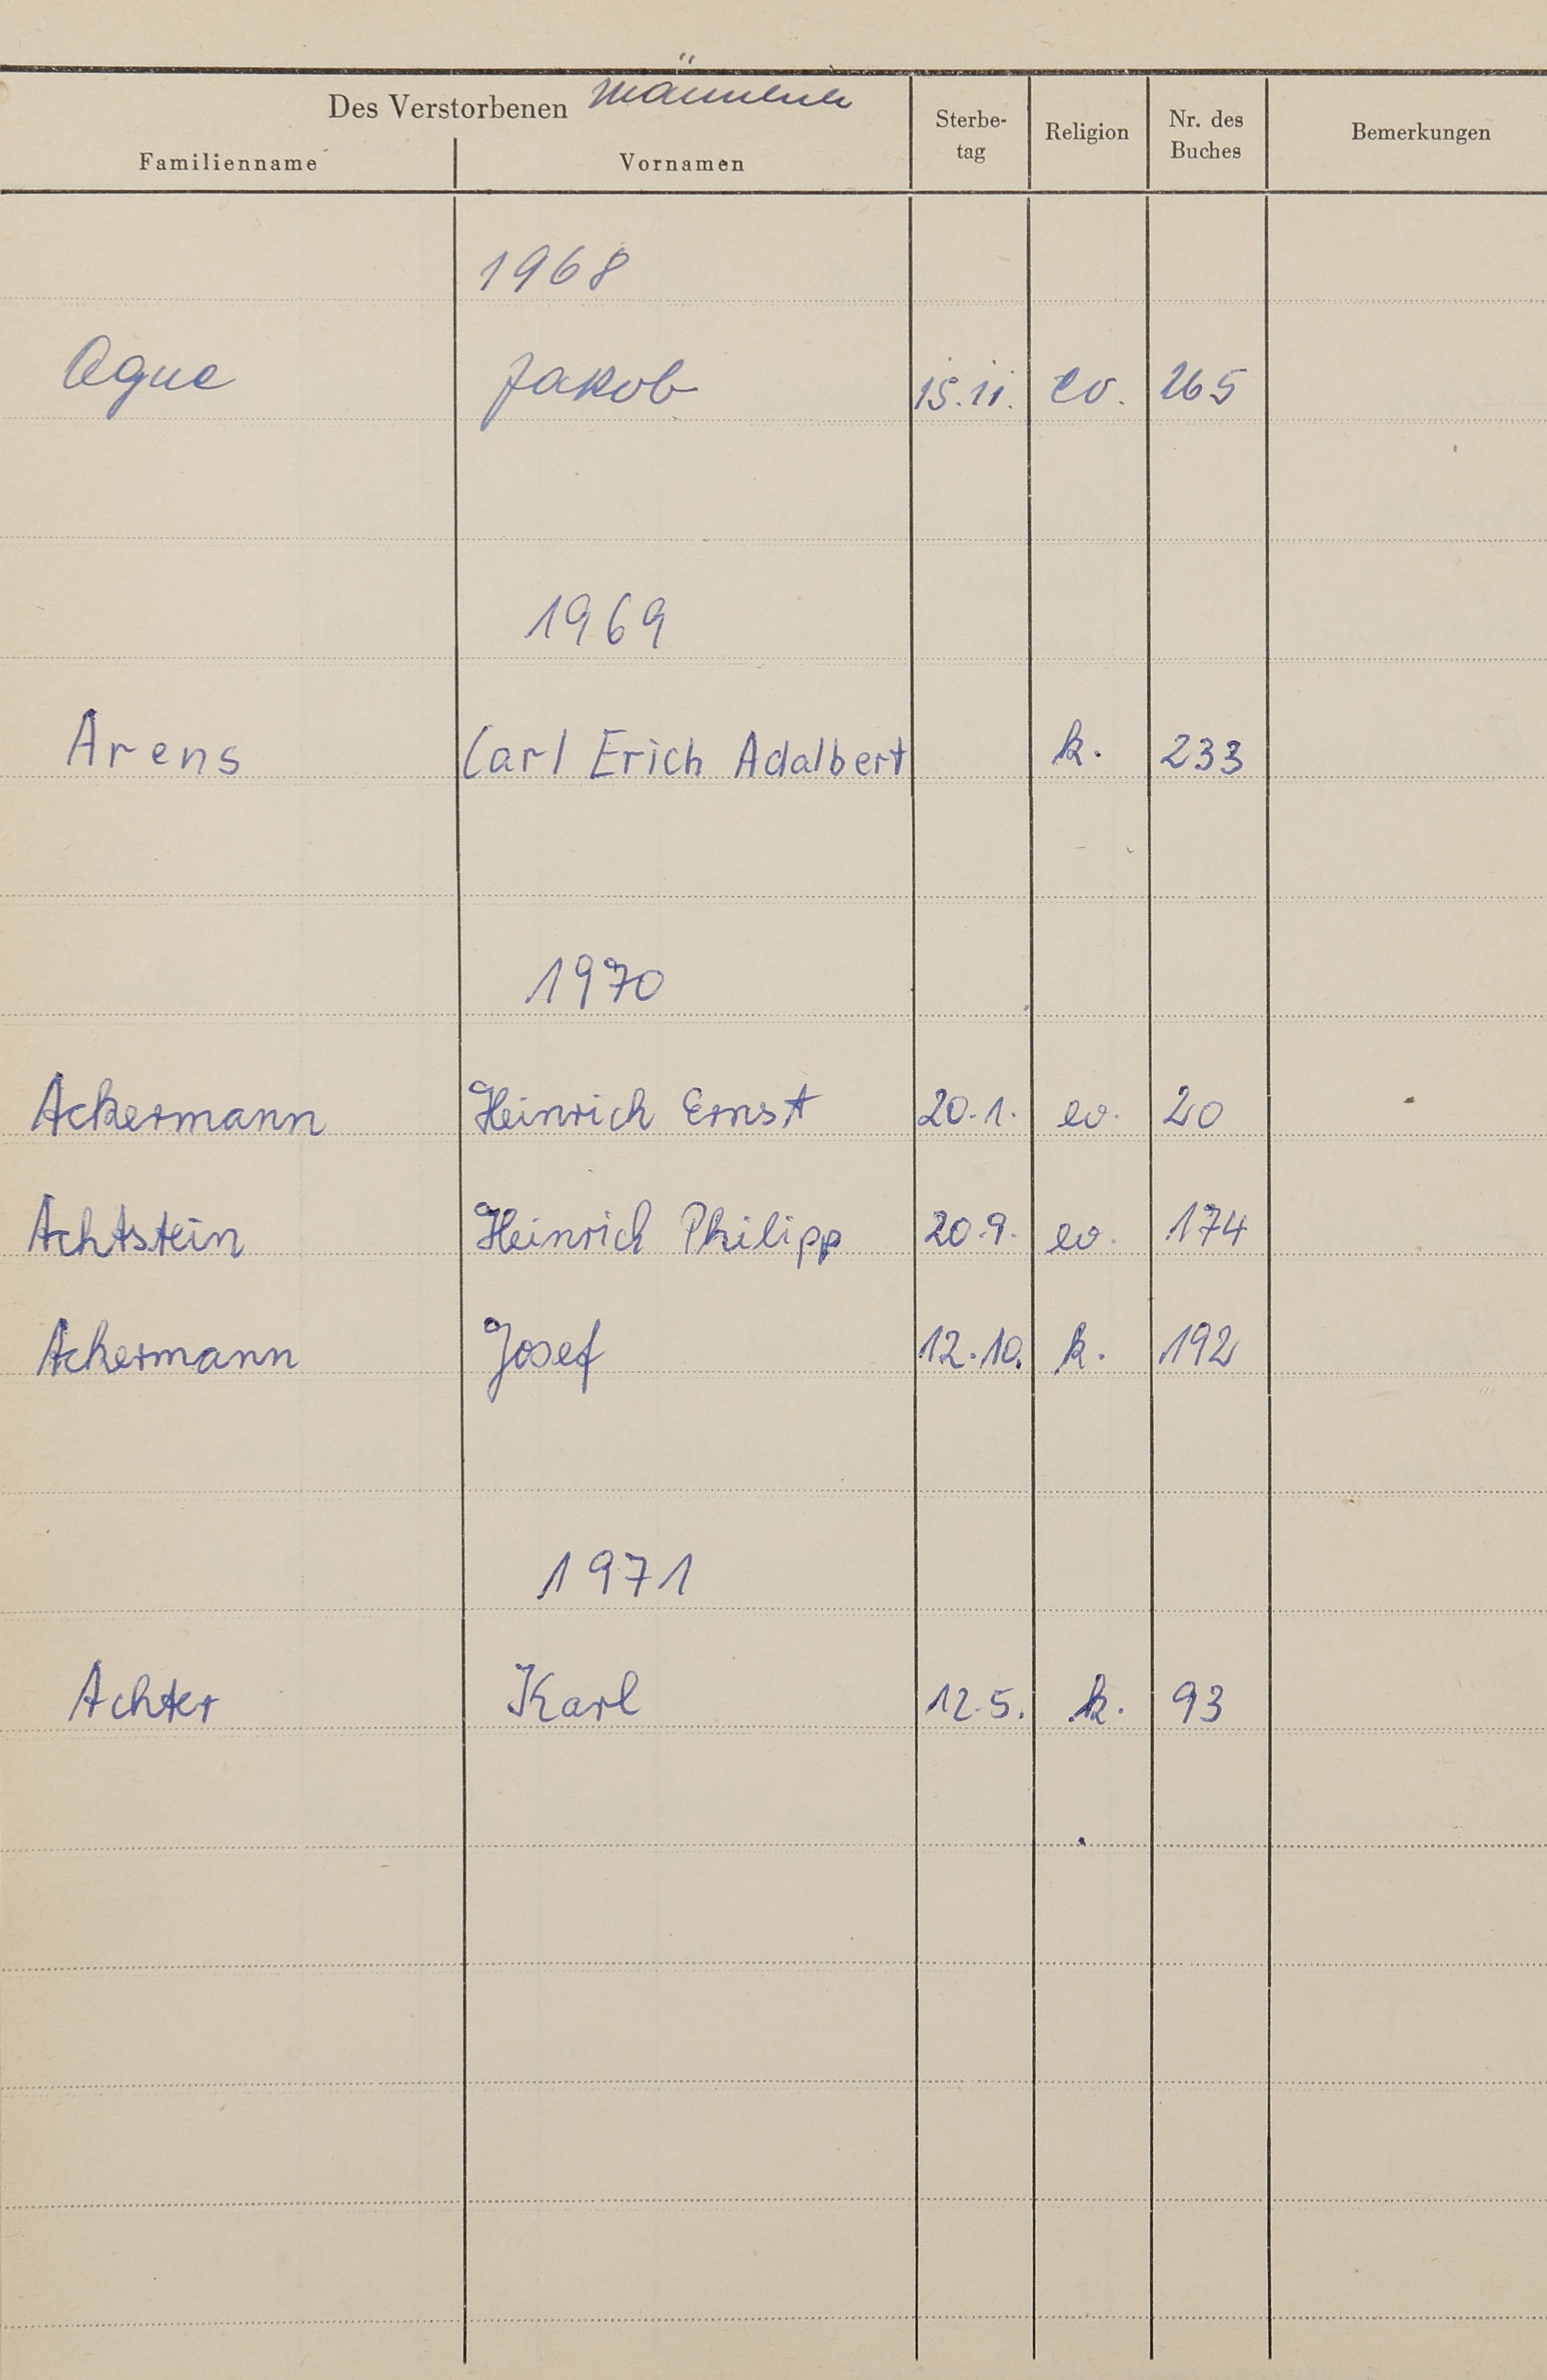 Des Verstorbenen männlich
Familienname Vornamen Sterbe-tag Religion Nr. des Buches Bemerkungen
1968
Ague Jakob 15.11. ev. 265
1969
Arens Carl Erich Adalbert k. 233
1970
Ackermann Heinrich Ernst 20.1. ev. 20
Achtstein Heinrich Philipp 20.9. ev. 174
Ackermann Josef 12.10. k. 192
1971
Achter Karl 12.5. k. 93